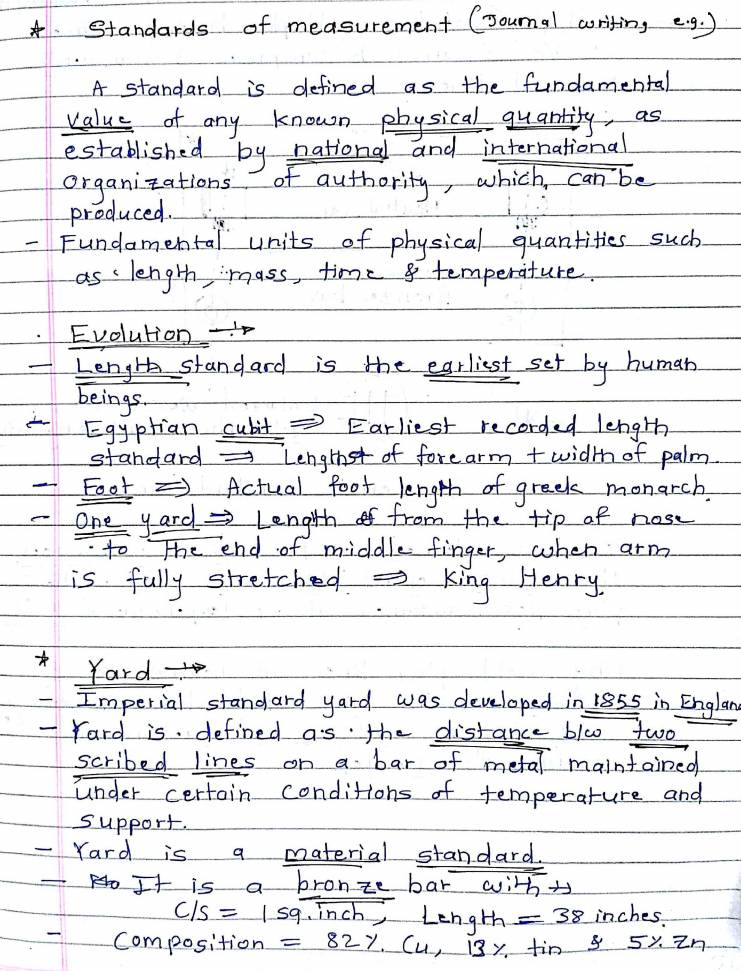 * Standards of measurement (Journal writing e.g.)
A standard is defined as the fundamental
value of any known physical quantity, as
established by national and international
organizations of authority, which can be
produced.
- Fundamental units of physical quantities such
as length, mass, time & temperature.
Evolution →
- Length standard is the earliest set by human
beings.
- Egyptian cubit ⇒ Earliest recorded length
standard ⇒ Lengthst of forearm + width of palm
- Foot ⇒ Actual foot length of greek monarch.
- One yard ⇒ Length of from the tip of nose
to the end of middle finger, when arm
is fully stretched ⇒ King Henry.
* Yard →
- Imperial standard yard was developed in 1855 in England
- Yard is defined as the distance b/w two
scribed lines on a bar of metal maintained
under certain conditions of temperature and
support.
- Yard is a material standard.
- It is a bronze bar with →
C/S = 1 sq. inch, Length = 38 inches.
- Composition = 82%. Cu, 13%. tin & 5%. Zn